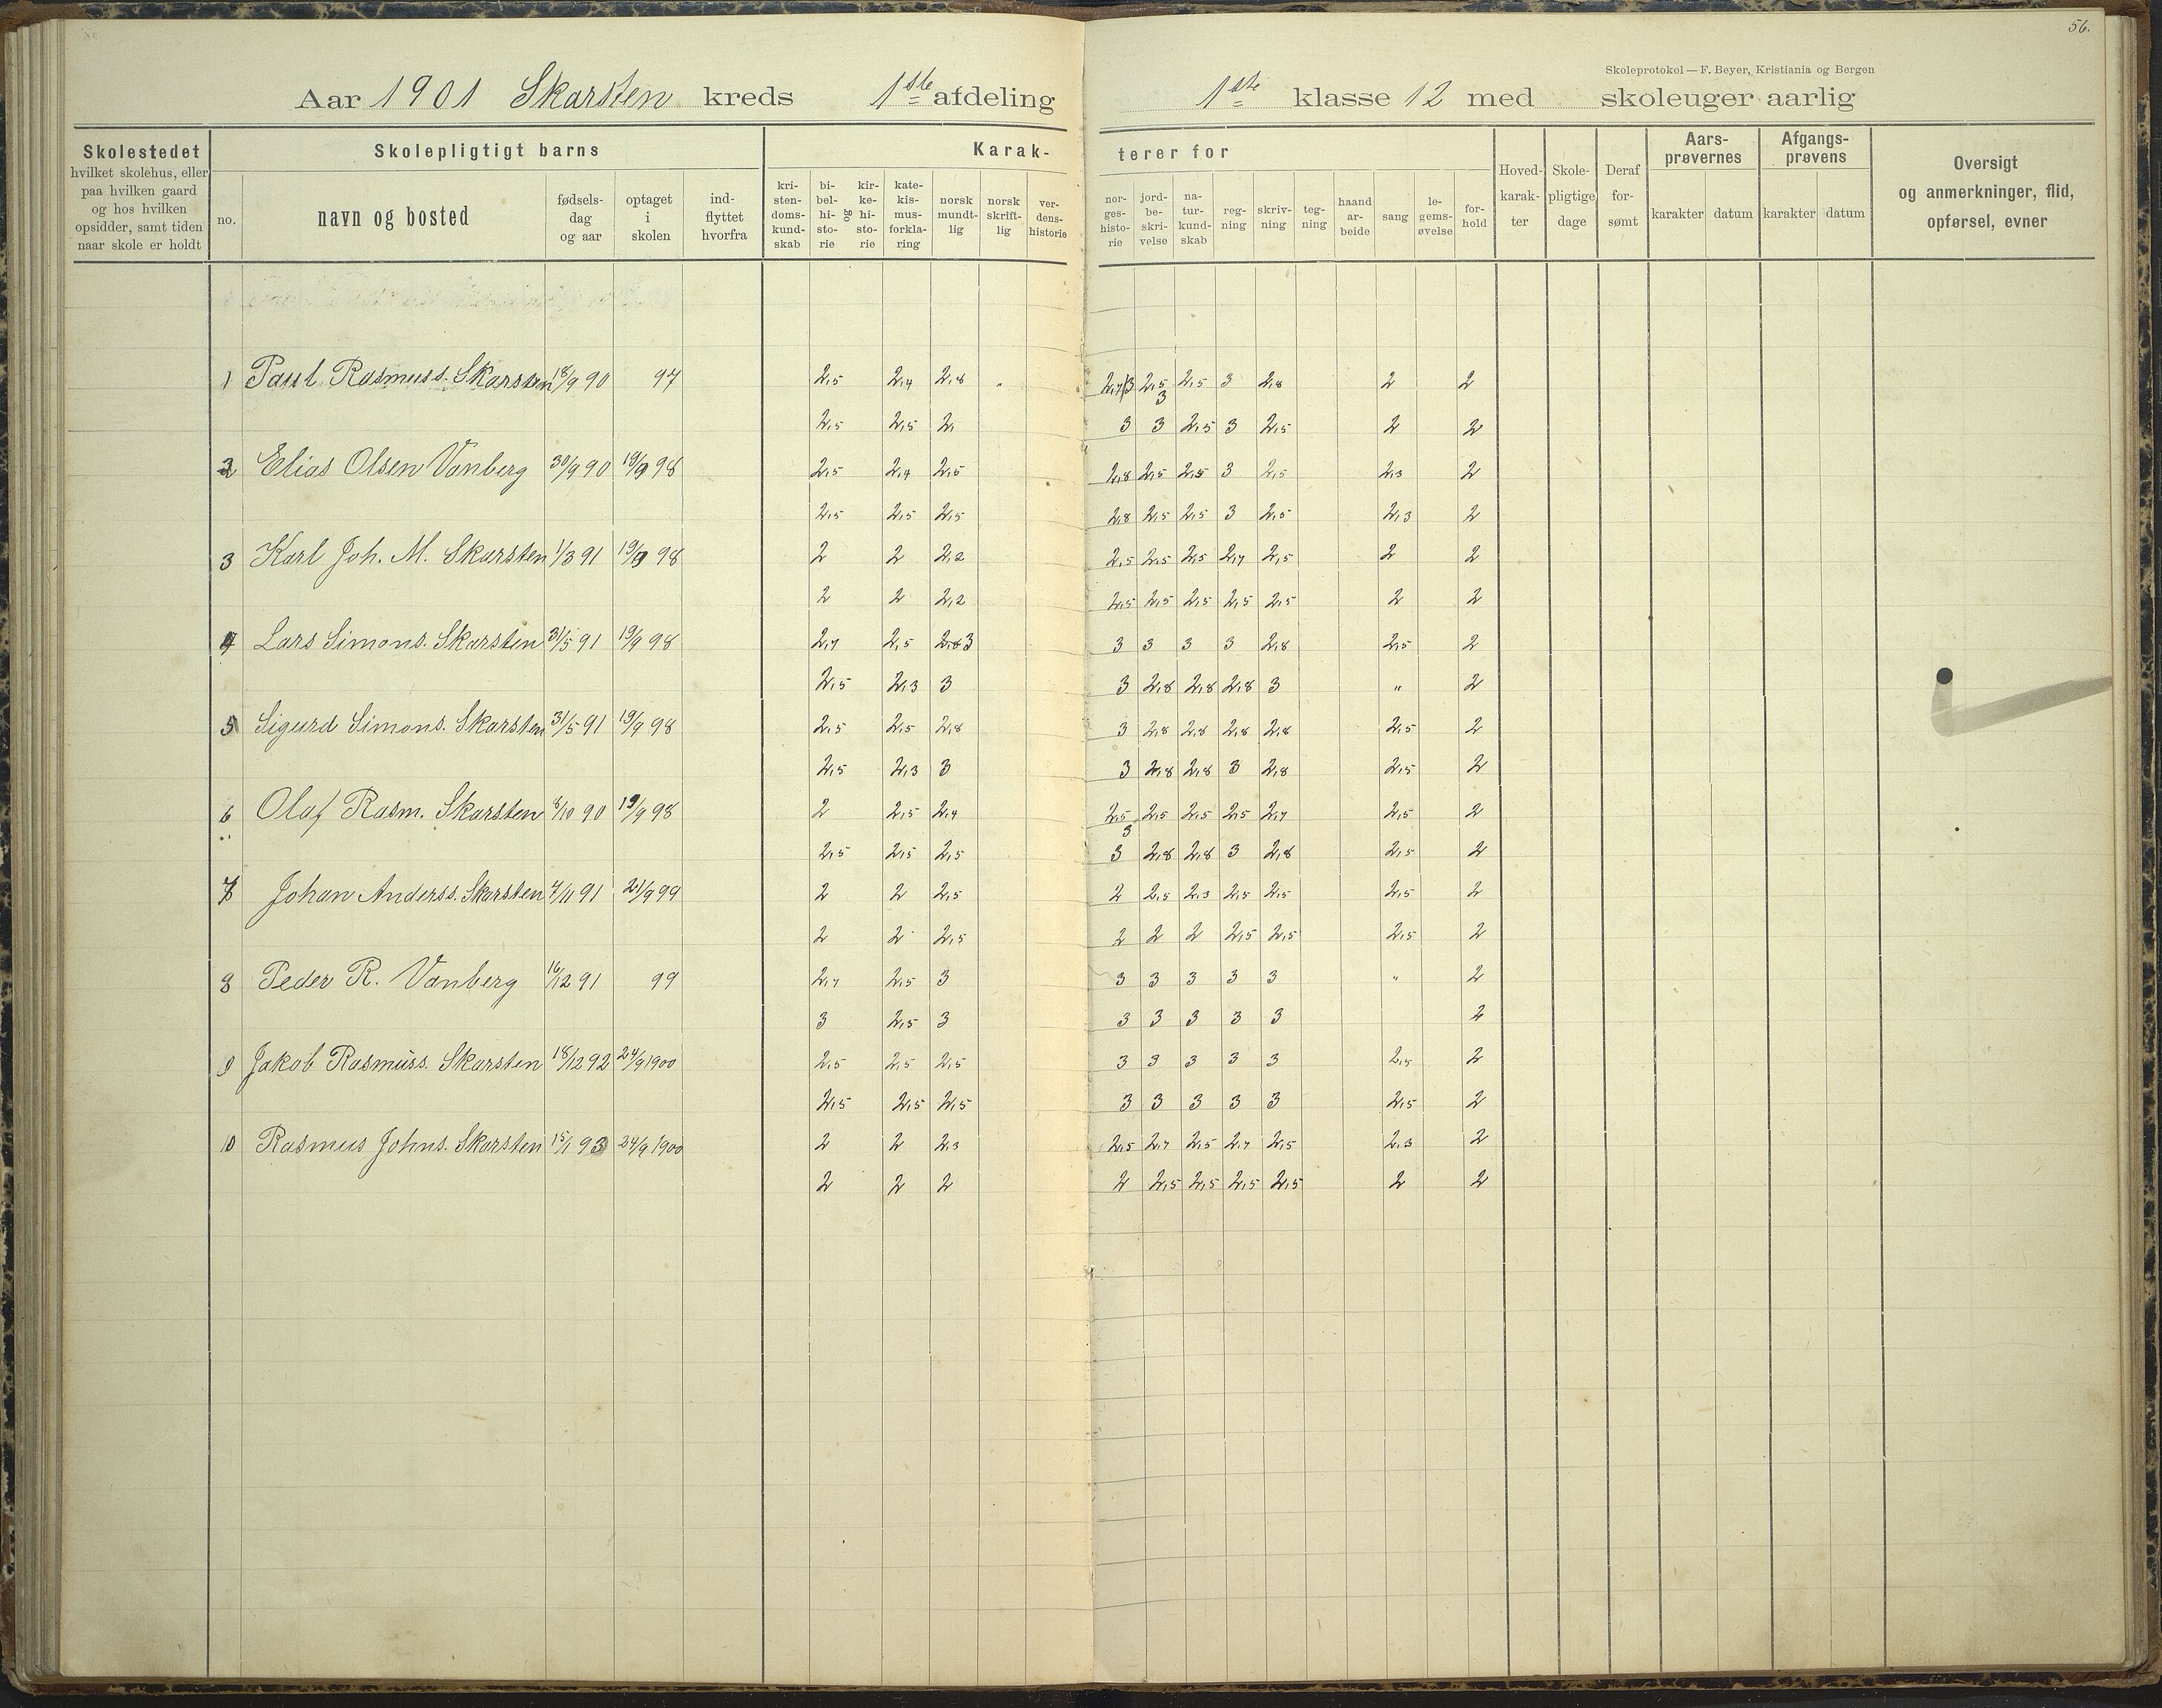 56.
Skoleprotokol — F. Beyer, Kristiania og Bergen
Aar 1901 Skarsten kreds 1ste afdeling 1ste klasse 12 med skoleuger aarlig
Skolestedet hvilket skolehus, eller paa hvilken gaard og hos hvilken opsidder, samt tiden naar skole er holdt
Skolepligtigt barns
no. navn og bosted fødsels-dag og aar optaget i skolen ind-flyttet hvorfra
Karak-terer for
kri-sten-doms-kund-skab bi-bel-hi-sto-rie og kir-ke-hi-sto-rie kate-kis-mus-forkla-ring norsk mundt-lig norsk skrift-lig ver-dens-historie nor-ges-histo-rie jord-be-skri-velse na-tur-kund-skab reg-ning skriv-ning teg-ning haand ar-beide sang le-gems-øvelse for-hold
Hoved-karak-ter Skole-pligtige dage Deraf for-sømt
Aars-prøvernes karakter datum Afgangs-prøvens karakter datum
Oversigt og anmerkninger, flid, opførsel, evner
1 Paul Rasmuss. Skarsten 18/9 90 97 2,5 2,4 2,8 2,7/3 2,5 3 2,5 3 2,8 2 2
2,5 2,5 2, 3 3 2,5 3 2,5 2 2
2 Elias Olsen Vanberg 30/9 90 19/9 98 2,5 2,4 2,5 2,8 2,5 2,5 3 2,5 2,3 2
2,5 2,5 2,5 2,8 2,5 2,5 3 2,5 2,3 2
3 Karl Joh. M. Skarsten 1/3 91 19/9 98 2 2 2,2 2,5 2,5 2,5 2,7 2,5 2 2
2 2 2,2 2,5 2,5 2,5 2,5 2,5 2 2
4 Lars Simons. Skarsten 31/5 91 19/9 98 2,7 2,5 2,8 3 3 3 3 3 2,8 2,5 2
2,5 2,3 3 3 2,8 2,8 2,8 3 " 2
5 Sigurd Simons. Skarsten 31/5 91 19/9 98 2,5 2,5 2,8 3 2,8 2,8 2,8 2,8 2,5 2
2,5 2,3 3 3 2,8 2,8 3 2,8 2,5 2
6 Olaf Rasm. Skarsten 8/10 90 19/9 98 2 2,5 2,4 2,5 3 2,5 2,5 2,5 2,7 2,5 2
2,5 2,5 2,5 3 2,8 2,8 3 2,8 2,5 2
7 Johan Anderss. Skarsten 4/11 91 21/9 99 2 2 2,5 2 2,5 2,3 2,5 2,5 2,5 2
2 2 2,5 2 2 2 2,5 2,5 2,5 2
8 Peder R. Vanberg 16/12 91 99 2,7 2,5 3 3 3 3 3 3 " 2
3 2,5 3 3 3 3 3 3 2
9 Jakob Rasmuss. Skarsten 18/12 92 24/9 1900 2,5 2,5 2,5 3 3 3 3 3 2,5 2
2,5 2,5 2,5 3 3 3 3 3 2,5 2
10 Rasmus Johns. Skarsten 15/1 93 24/9 1900 2 2 2,3 2,5 2,7 2,5 2,7 2,5 2,3 2
2 2 2 2 2,5 2,5 2,5 2,5 2 2